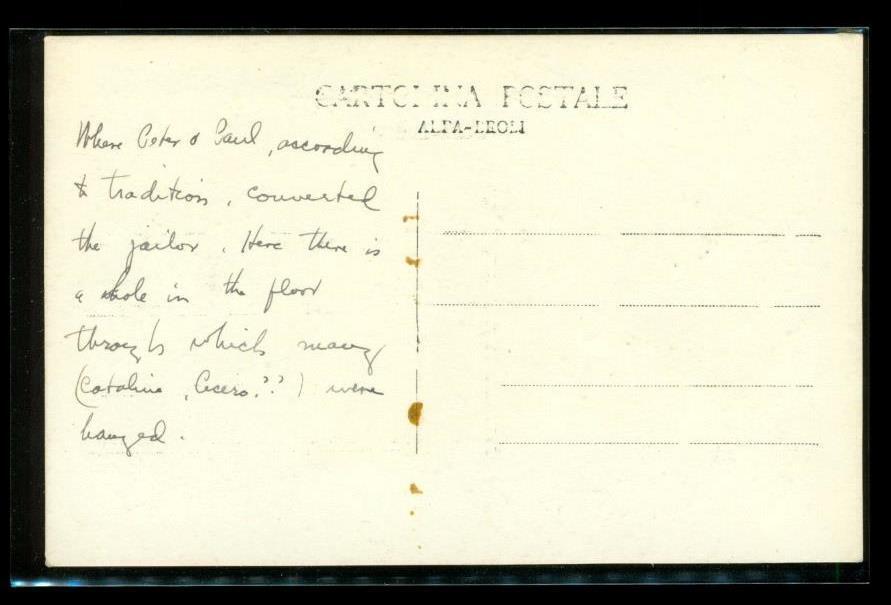 CARTOLINA POSTALE
ALFA-BROLI
Where Peter & Paul, according
to tradition, converted
the jailor. Here there is
a hole in the floor
through which many
(Cataline, Cicero??) were
hanged.